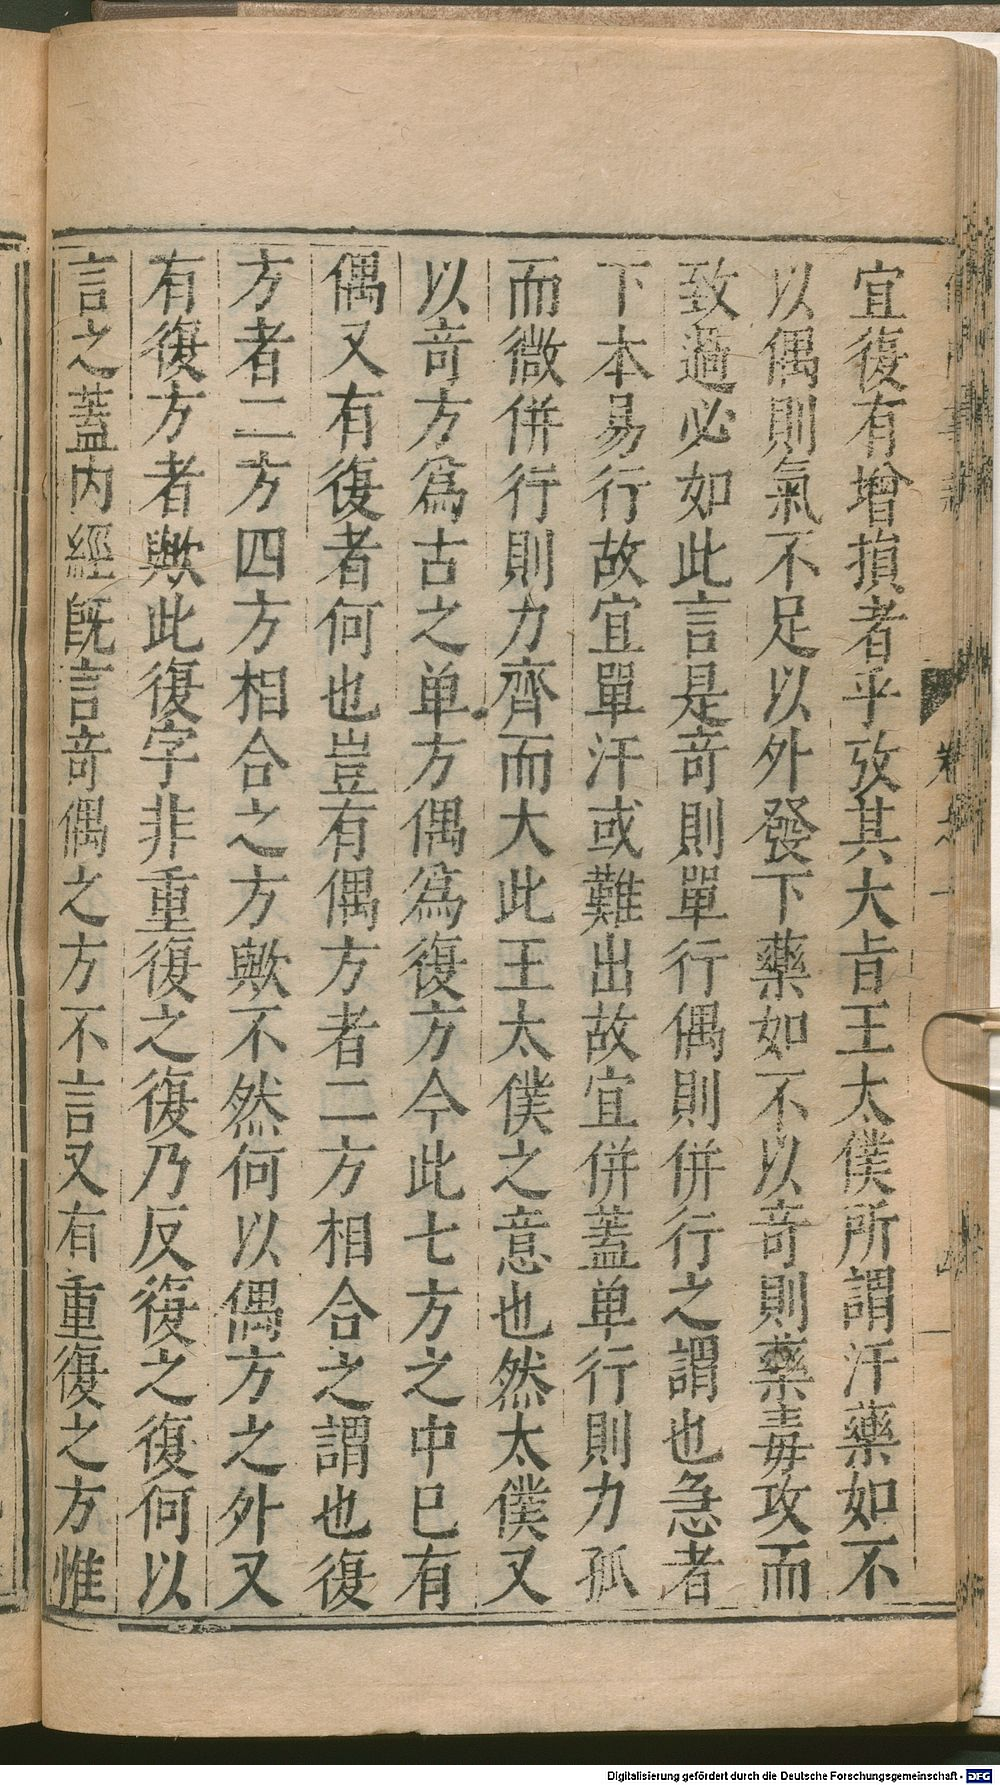 宜復有增損者乎攷其大旨王太僕所謂汗藥如不
以偶則氣不足以外發下藥如不以竒則藥毒攻而
致過必如此言是竒則單行偶則併行之謂也急者
下本易行故宜單汗或難出故宜併蓋单行則力孤
而微併行則力齊而大此王太僕之意也然太僕又
以竒方爲古之单方偶爲復方今此七方之中已有
偶又有復者何也豈有偶方者二方相合之謂也復
方者二方四方相合之方歟不然何以偶方之外又
有復方者歟此復字非重復之復乃反復之復何以
言之蓋内經既言竒偶之方不言又有重復之方惟
Digitalisierung gefördert durch die Deutsche Forschungsgemeinschaft - DFG